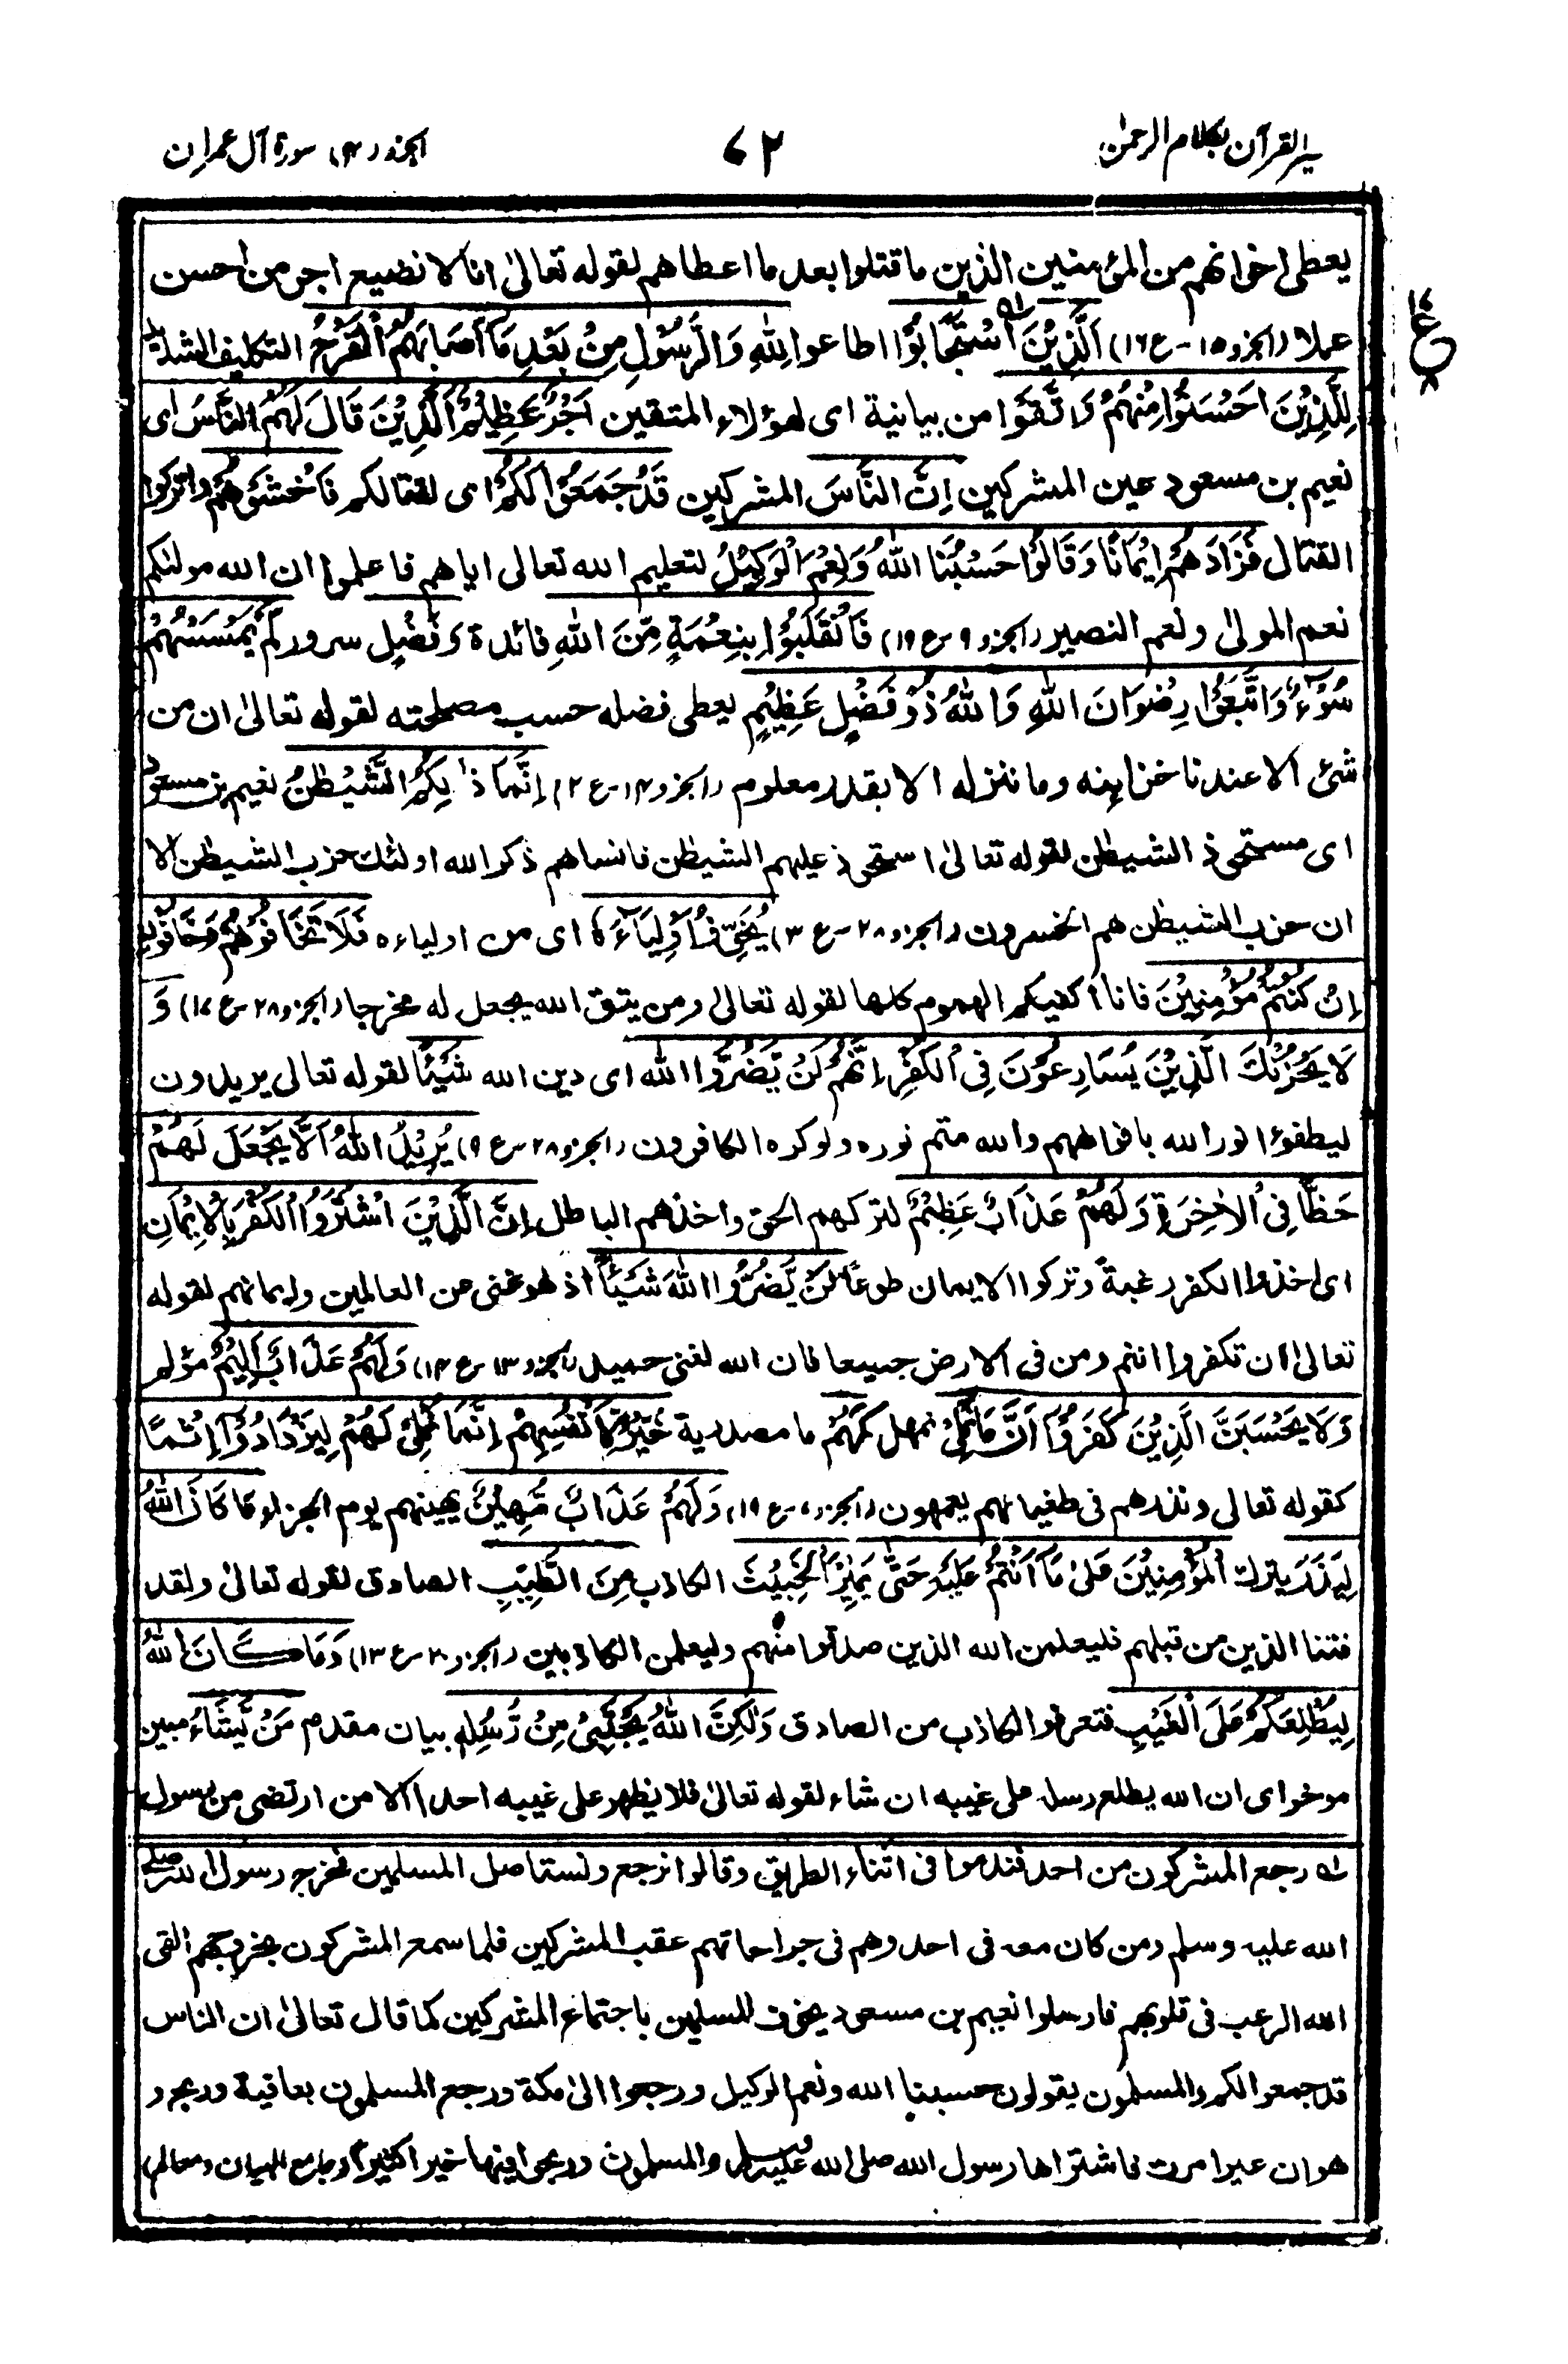 یر القرآن بکلام الرحمٰن
۷۲
الجزء (۴) سورة آل عمران
یعطی اخوانهم من المؤمنین الذین ما قتلوا بعد ما اعطاهم لقوله تعالیٰ انا لا نضیع اجر من احسن
عملا (الجزو ۱۵ - ع ۱۶) اَلَّذِیْنَ اسْتَجَابُوْا اطاعوا لِلّٰهِ وَالرَّسُوْلِ مِنْ بَعْدِ مَا اَصَابَهُمُ الْقَرْحُ التکلیف الشدید
لِلَّذِیْنَ اَحْسَنُوْا مِنْهُمْ وَاتَّقَوْا من بیانیة ای لهؤلاء المتقین اَجْرٌ عَظِیْمٌ اَلَّذِیْنَ قَالَ لَهُمُ النَّاسُ ای
نعیم بن مسعود عین المشرکین اِنَّ النَّاسَ المشرکین قَدْ جَمَعُوْا لَکُمْ ای لقتالکم فَاخْشَوْهُمْ واترکوا
القتال فَزَادَهُمْ اِیْمَانًا وَقَالُوْا حَسْبُنَا اللّٰهُ وَنِعْمَ الْوَکِیْلُ لتعلیم الله تعالی ایاهم فاعلموا ان الله مولٰکم
نعم المولیٰ ونعم النصیر (الجزو ۹ - ع ۱۹) فَانْقَلَبُوْا بِنِعْمَةٍ مِّنَ اللّٰهِ فائدة وَفَضْلٍ سرور لَّمْ یَمْسَسْهُمْ
سُوْٓءٌ وَاتَّبَعُوْا رِضْوَانَ اللّٰهِ وَاللّٰهُ ذُوْ فَضْلٍ عَظِیْمٍ یعطی فضله حسب مصلحته لقوله تعالیٰ ان من
شئ الا عندنا خزاینه وما ننزله الا بقدر معلوم (الجزو ۱۴ - ع ۲) اِنَّمَا ذٰلِکُمُ الشَّیْطٰنُ نعیم بن مسعود
ای مستحوذ الشیطٰن لقوله تعالیٰ استحوذ علیهم الشیطٰن فانساهم ذکر الله اولئك حزب الشیطٰن الا
ان حزب الشیطٰن هم الخسرون (الجزو ۲۸ - ع ۳) یُخَوِّفُ اَوْلِیَآءَهٗ ای من اولیاءه فَلَا تَخَافُوْهُمْ وَخَافُوْنِ
اِنْ کُنْتُمْ مُّؤْمِنِیْنَ فانا اکفیکم الهموم کلها لقوله تعالیٰ ومن یتق الله یجعل له مخرجا (الجزو ۲۸ - ع ۱۷) وَ
لَا یَحْزُنْكَ الَّذِیْنَ یُسَارِعُوْنَ فِی الْکُفْرِ اِنَّهُمْ لَنْ یَّضُرُّوا اللّٰهَ ای دین الله شَیْئًا لقوله تعالی یریدون
لیطفؤا نور الله بافواههم والله متم نوره ولو کره الکافرون (الجزو ۲۸ - ع ۹) یُرِیْدُ اللّٰهُ اَلَّا یَجْعَلَ لَهُمْ
حَظًّا فِی الْاٰخِرَةِ وَلَهُمْ عَذَابٌ عَظِیْمٌ لترکهم الحق واخذهم الباطل اِنَّ الَّذِیْنَ اشْتَرَوُا الْکُفْرَ بِالْاِیْمَانِ
ای اخذوا الکفر رغبةً وترکوا الایمان طوعًا لَنْ یَّضُرُّوا اللّٰهَ شَیْئًا اذ هو غنی عن العالمین وایمانهم لقوله
تعالیٰ ان تکفروا انتم ومن فی الارض جمیعا فان الله لغنی حمید (الجزو ۱۳ - ع ۱۴) وَلَهُمْ عَذَابٌ اَلِیْمٌ مؤلم
وَلَا یَحْسَبَنَّ الَّذِیْنَ کَفَرُوْا اَنَّ مَا نُمْلِیْ نمهل لَهُمْ ما مصدریة خَیْرٌ لِّاَنْفُسِهِمْ اِنَّمَا نُمْلِیْ لَهُمْ لِیَزْدَادُوْا اِثْمًا
کقوله تعالی ونذرهم فی طغیانهم یعمهون (الجزو ۷ - ع ۱۹) وَلَهُمْ عَذَابٌ مُّهِیْنٌ یهینهم یوم الجزاء مَا کَانَ اللّٰهُ
لِیَذَرَ یترك الْمُؤْمِنِیْنَ عَلٰی مَا اَنْتُمْ عَلَیْهِ حَتّٰی یَمِیْزَ الْخَبِیْثَ الکاذب مِنَ الطَّیِّبِ الصادق لقوله تعالیٰ ولقد
فتنا الذین من قبلهم فلیعلمن الله الذین صدقوا منهم ولیعلمن الکاذبین (الجزو ۲۰ - ع ۱۳) وَمَا کَانَ اللّٰهُ
لِیُطْلِعَکُمْ عَلَی الْغَیْبِ فتعرفوا الکاذب من الصادق وَلٰکِنَّ اللّٰهَ یَجْتَبِیْ مِنْ رُّسُلِهٖ بیان مقدم مَنْ یَّشَآءُ مبین
موخر ای ان الله یطلع رسله علی غیبه ان شاء لقوله تعالیٰ فلا یظهر علی غیبه احدا الا من ارتضی من رسول
له رجع المشرکون من احد فندموا فی اثناء الطریق وقالوا نرجع ونستاصل المسلمین فخرج رسول الله صلی
الله علیه وسلم ومن کان معه فی احد وهم فی جراحاتهم عقب المشرکین فلما سمع المشرکون بخروجهم القی
الله الرعب فی قلوبهم فارسلوا نعیم بن مسعود یخوف المسلمین باجتماع المشرکین کما قال تعالیٰ ان الناس
قد جمعوا لکم والمسلمون یقولون حسبنا الله ونعم الوکیل ورجعوا الیٰ مکة ورجع المسلمون بعافیة وربح و
هو ان عیرا مرت فاشتراها رسول الله صلی الله علیه وسلم والمسلمون وربحوا فیها خیرا کثیرا (جامع البیان ومعالم)